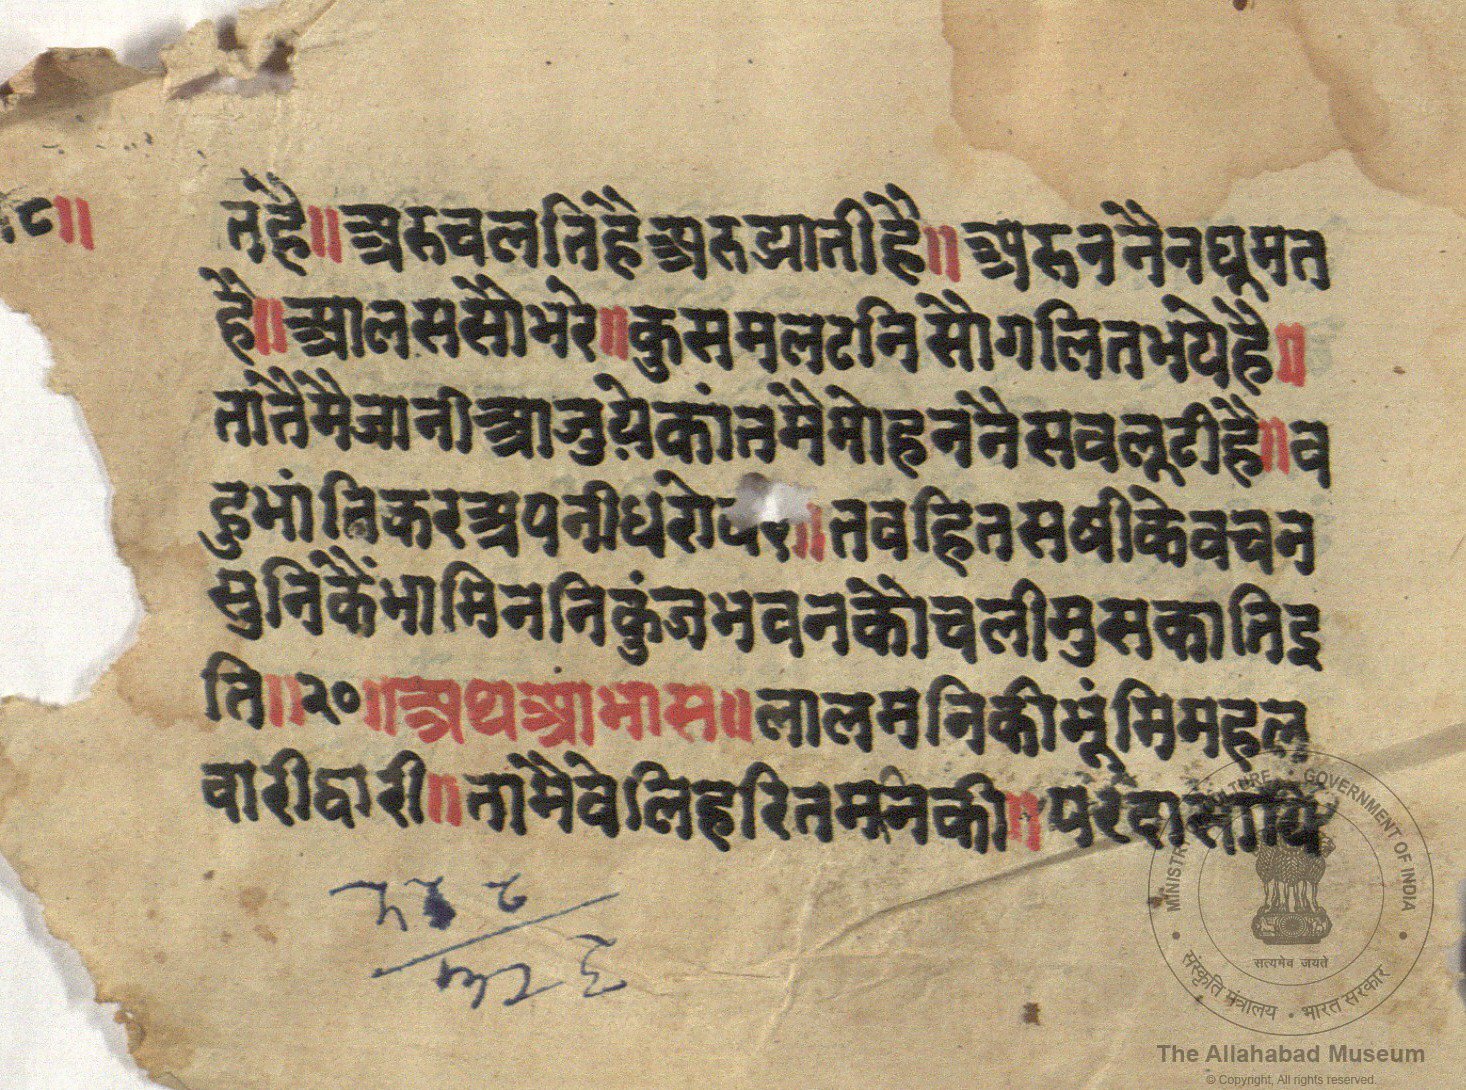 ८॥
तहै॥अरुचलतिहैअरुआतीहै॥अरुननैनघूमत
है॥आलससौभरे॥कुसमलटनिसौगलितभयेहै॥
तातैमैजानीआजुयेकांतमैमोहननैसवलूटीहै॥व
हुभांतिकरअपनीधरो॥तवहितसषीकेवचन
सुनिकैंभामिननिकुंजभवनकौचलीमुसकातिइ
ति॥२०॥अथआभास॥लालमनिकीभूंमिमहल
वारीद्वारी॥तामैवेलिहरितमनिकी॥परदा
MINISTRY OF CULTURE • GOVERNMENT OF INDIA
सत्यमेव जयते
संस्कृति मंत्रालय • भारत सरकार
The Allahabad Museum
© Copyright, All rights reserved.